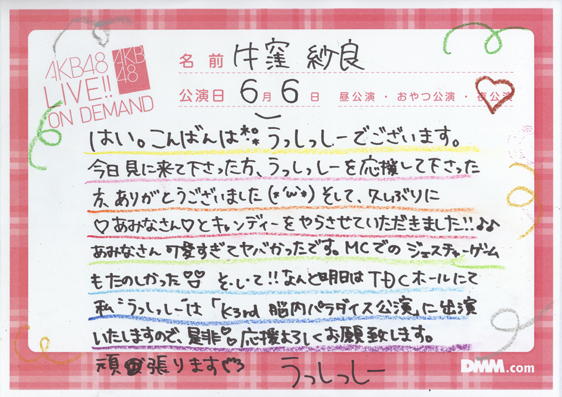 AKB48
LIVE!!
ON DEMAND
AKB
48
名前 牛窪 紗良
公演日 6月6日 昼公演・おやつ公演・夜公演
はい。こんばんは** うっしっしーでございます。
今日見に来て下さった方、うっしっしーを応援して下さった
方、ありがとうございました(・'ω'・)そして、久しぶりに
♡あみなさん♡とキャンディーをやらさせていただきました!!♪♪
あみなさん可愛すぎてヤバかったです。MCでのジェスチャーゲーム
もたのしかった♡♡ そ、し、て!!なんと明日はTDCホールにて
私"うっしっしー"は「K3rd 脳内パラダイス公演」に出演
いたしますので、是非♡応援よろしくお願い致します。
頑張ります
うっしっしー
DMM.com